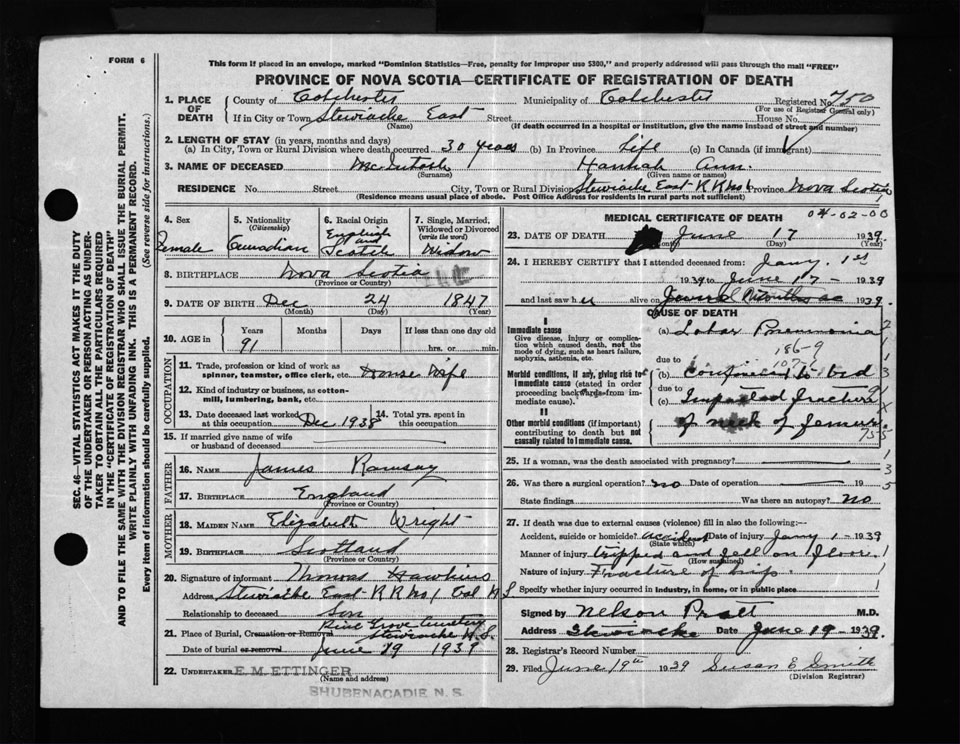 FORM 6
This form if placed in an envelope, marked "Dominion Statistics—Free, penalty for improper use $300," and properly addressed will pass through the mail "FREE"
PROVINCE OF NOVA SCOTIA—CERTIFICATE OF REGISTRATION OF DEATH
SEC. 46—VITAL STATISTICS ACT MAKES IT THE DUTY
OF THE UNDERTAKER OR PERSON ACTING AS UNDER-
TAKER TO OBTAIN ALL THE PARTICULARS REQUIRED
IN THE "CERTIFICATE OF REGISTRATION OF DEATH"
AND TO FILE THE SAME WITH THE DIVISION REGISTRAR WHO SHALL ISSUE THE BURIAL PERMIT.
WRITE PLAINLY WITH UNFADING INK. THIS IS A PERMANENT RECORD.
Every item of information should be carefully supplied. (See reverse side for instructions.)
1. PLACE OF DEATH County of Colchester Municipality of Colchester Registered No. 750
(For use of Registrar General only)
If in City or Town Stewiacke East Street House No.
(Name) (If death occurred in a hospital or institution, give the name instead of street and number)
2. LENGTH OF STAY (in years, months and days)
(a) In City, Town or Rural Division where death occurred 30 years (b) In Province Life (c) In Canada (if immigrant)
3. NAME OF DECEASED McIntosh Hannah Ann.
(Surname) (Given name or names)
RESIDENCE No. Street City, Town or Rural Division Stewiacke East R R No 1 Province Nova Scotia
(Residence means usual place of abode. Post Office Address for residents in rural parts not sufficient)
4. Sex 5. Nationality (Citizenship) 6. Racial Origin 7. Single, Married, Widowed or Divorced (write the word)
Female Canadian English and Scotch Widow
8. BIRTHPLACE Nova Scotia
(Province or Country)
9. DATE OF BIRTH Dec 24 1847
(Month) (Day) (Year)
10. AGE in Years Months Days If less than one day old
91 hrs. or min.
OCCUPATION
11. Trade, profession or kind of work as spinner, teamster, office clerk, etc. House Wife
12. Kind of industry or business, as cotton-mill, lumbering, bank, etc.
13. Date deceased last worked at this occupation Dec 1938 14. Total yrs. spent in this occupation
15. If married give name of wife or husband of deceased
FATHER
16. NAME James Ramsay
17. BIRTHPLACE England
(Province or Country)
MOTHER
18. MAIDEN NAME Elizabeth Wright
19. BIRTHPLACE Scotland
(Province or Country)
20. Signature of informant Thomas Hawkins
Address Stewiacke East R R No 1 Col N S
Relationship to deceased Son
21. Place of Burial, Cremation or Removal Pine Grove Cemetery Stewiacke N.S.
Date of burial or removal June 19 1939
22. UNDERTAKER E. M. ETTINGER
(Name and address)
SHUBENACADIE N. S.
MEDICAL CERTIFICATE OF DEATH
04-02-00
23. DATE OF DEATH June 17 1939
(Month) (Day) (Year)
24. I HEREBY CERTIFY that I attended deceased from: Jany. 1st
1939 to June 17 - 1939
and last saw her alive on Several Months ago 1939.
CAUSE OF DEATH
I
Immediate cause
Give disease, injury or complication which caused death, not the mode of dying, such as heart failure, asphyxia, asthenia, etc.
(a) Lobar Pneumonia
186-9
due to
Morbid conditions, if any, giving rise to immediate cause (stated in order proceeding backwards from immediate cause).
(b) Confined to bed
due to
(c) Impacted fracture
II
Other morbid conditions (if important) contributing to death but not causally related to immediate cause.
of neck of femur.
25. If a woman, was the death associated with pregnancy?
26. Was there a surgical operation? no Date of operation 19
State findings Was there an autopsy? no
27. If death was due to external causes (violence) fill in also the following:—
Accident, suicide or homicide? accident Date of injury Jany 1 - 1939
(State which)
Manner of injury tripped and fell on floor.
(How sustained)
Nature of injury Fracture of hip.
Specify whether injury occurred in industry, in home, or in public place
Signed by Nelson Pratt M.D.
Address Stewiacke Date June 19 - 1939.
28. Registrar's Record Number
29. Filed June 19th 1939 Susan E Smith
(Division Registrar)